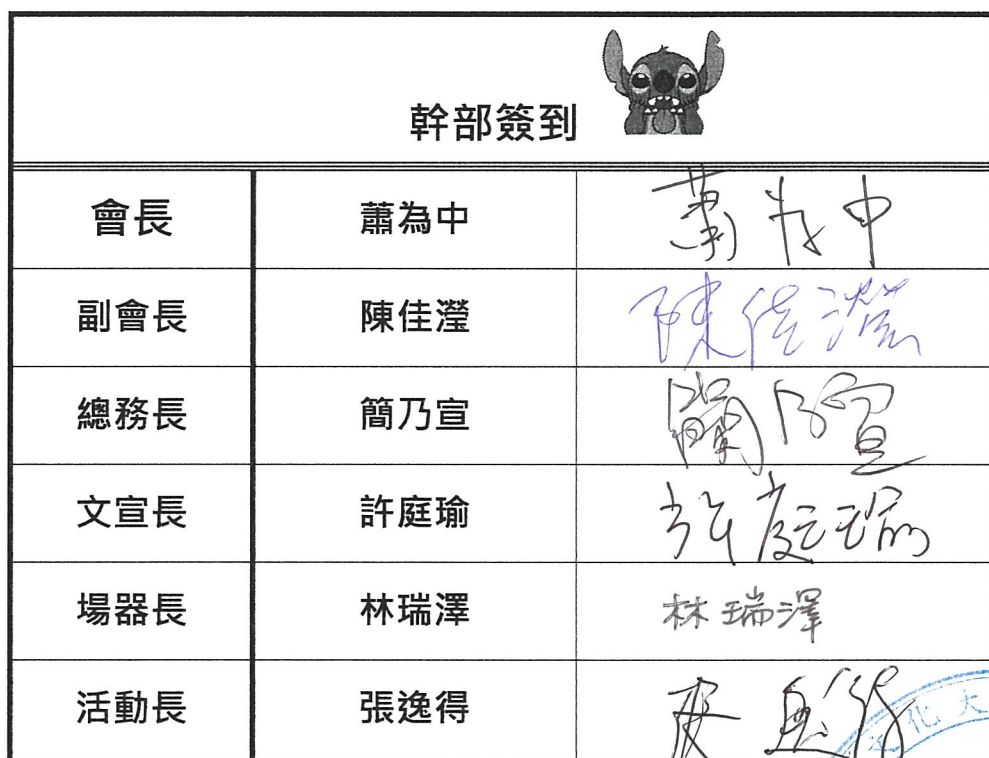 幹部簽到
會長 蕭為中 蕭为中
副會長 陳佳瀅 陳佳瀅
總務長 簡乃宣 簡乃宣
文宣長 許庭瑜 許庭瑜
場器長 林瑞澤 林瑞澤
活動長 張逸得 張逸得
文化大